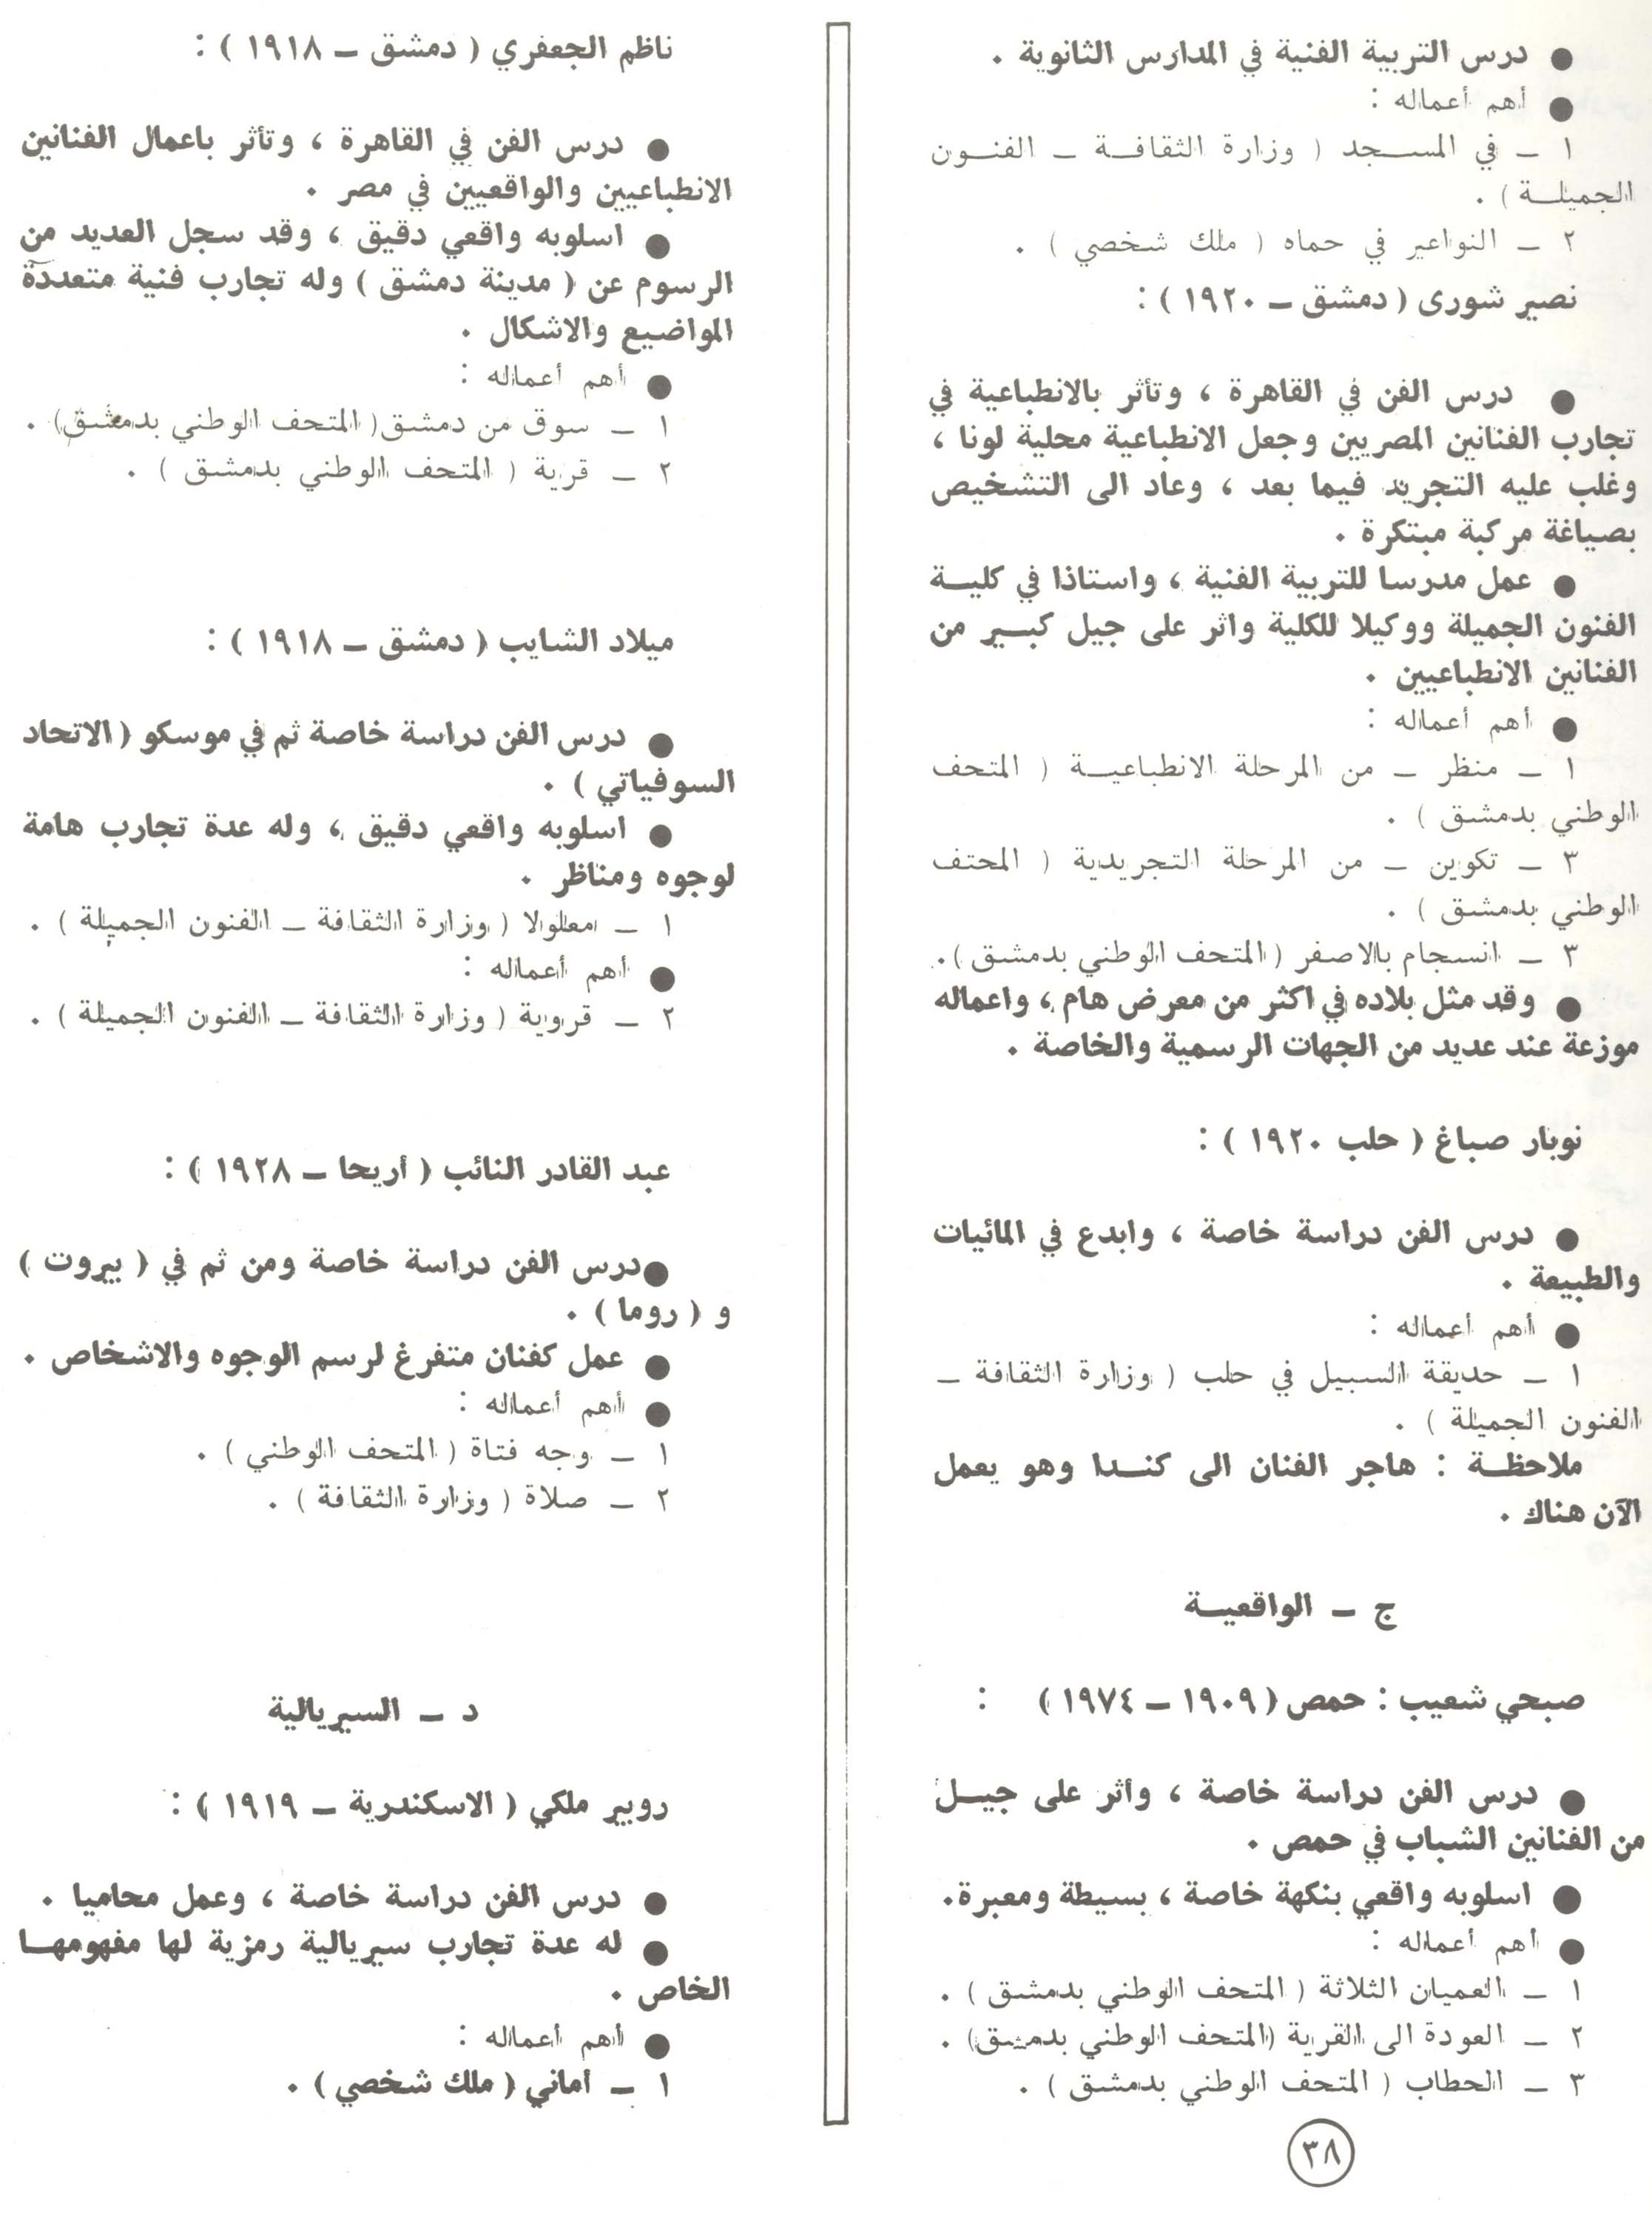 ● درس التربية الفنية في المدارس الثانوية .
● أهم أعماله :
١ ــ في المســجد ( وزارة الثقافــة ــ الفنــون
الجميلــة ) .
٢ ــ النواعير في حماه ( ملك شخصي ) .
نصير شورى ( دمشق ــ ١٩٢٠ ) :
● درس الفن في القاهرة ، وتأثر بالانطباعية في
تجارب الفنانين المصريين وجعل الانطباعية محلية لونا ،
وغلب عليه التجريد فيما بعد ، وعاد الى التشخيص
بصياغة مركبة مبتكرة .
● عمل مدرسا للتربية الفنية ، واستاذا في كليــة
الفنون الجميلة ووكيلا للكلية واثر على جيل كبــير من
الفنانين الانطباعيين .
● أهم أعماله :
١ ــ منظر ــ من المرحلة الانطباعيــة ( المتحف
الوطني بدمشق ) .
٣ ــ تكوين ــ من المرحلة التجريدية ( المحتف
الوطني بدمشق ) .
٣ ــ انسجام بالاصفر ( المتحف الوطني بدمشق ) .
● وقد مثل بلاده في اكثر من معرض هام ، واعماله
موزعة عند عديد من الجهات الرسمية والخاصة .
نوبار صباغ ( حلب ١٩٢٠ ) :
● درس الفن دراسة خاصة ، وابدع في المائيات
والطبيعة .
● أهم أعماله :
١ ــ حديقة السبيل في حلب ( وزارة الثقافة ــ
الفنون الجميلة ) .
ملاحظــة : هاجر الفنان الى كنــدا وهو يعمل
الآن هناك .
ج ــ الواقعيــة
صبحي شعيب : حمص ( ١٩٠٩ ــ ١٩٧٤ ) :
● درس الفن دراسة خاصة ، وأثر على جيــل
من الفنانين الشباب في حمص .
● اسلوبه واقعي بنكهة خاصة ، بسيطة ومعبرة .
● أهم أعماله :
١ ــ العميان الثلاثة ( المتحف الوطني بدمشق ) .
٢ ــ العودة الى القرية ( المتحف الوطني بدمشق ) .
٣ ــ الحطاب ( المتحف الوطني بدمشق ) .
٣٨
ناظم الجعفري ( دمشق ــ ١٩١٨ ) :
● درس الفن في القاهرة ، وتأثر باعمال الفنانين
الانطباعيين والواقعيين في مصر .
● اسلوبه واقعي دقيق ، وقد سجل العديد من
الرسوم عن ( مدينة دمشق ) وله تجارب فنية متعددة
المواضيع والاشكال .
● أهم أعماله :
١ ــ سوق من دمشق ( المتحف الوطني بدمشق ) .
٢ ــ قرية ( المتحف الوطني بدمشق ) .
ميلاد الشايب ( دمشق ــ ١٩١٨ ) :
● درس الفن دراسة خاصة ثم في موسكو ( الاتحاد
السوفياتي ) .
● اسلوبه واقعي دقيق ، وله عدة تجارب هامة
لوجوه ومناظر .
١ ــ معلولا ( وزارة الثقافة ــ الفنون الجميلة ) .
● أهم أعماله :
٢ ــ قروية ( وزارة الثقافة ــ الفنون الجميلة ) .
عبد القادر النائب ( أريحا ــ ١٩٢٨ ) :
● درس الفن دراسة خاصة ومن ثم في ( بيروت )
و ( روما ) .
● عمل كفنان متفرغ لرسم الوجوه والاشخاص .
● أهم أعماله :
١ ــ وجه فتاة ( المتحف الوطني ) .
٢ ــ صلاة ( وزارة الثقافة ) .
د ــ السيريالية
روبير ملكي ( الاسكندرية ــ ١٩١٩ ) :
● درس الفن دراسة خاصة ، وعمل محاميا .
● له عدة تجارب سيريالية رمزية لها مفهومهــا
الخاص .
● أهم أعماله :
١ ــ أماني ( ملك شخصي ) .